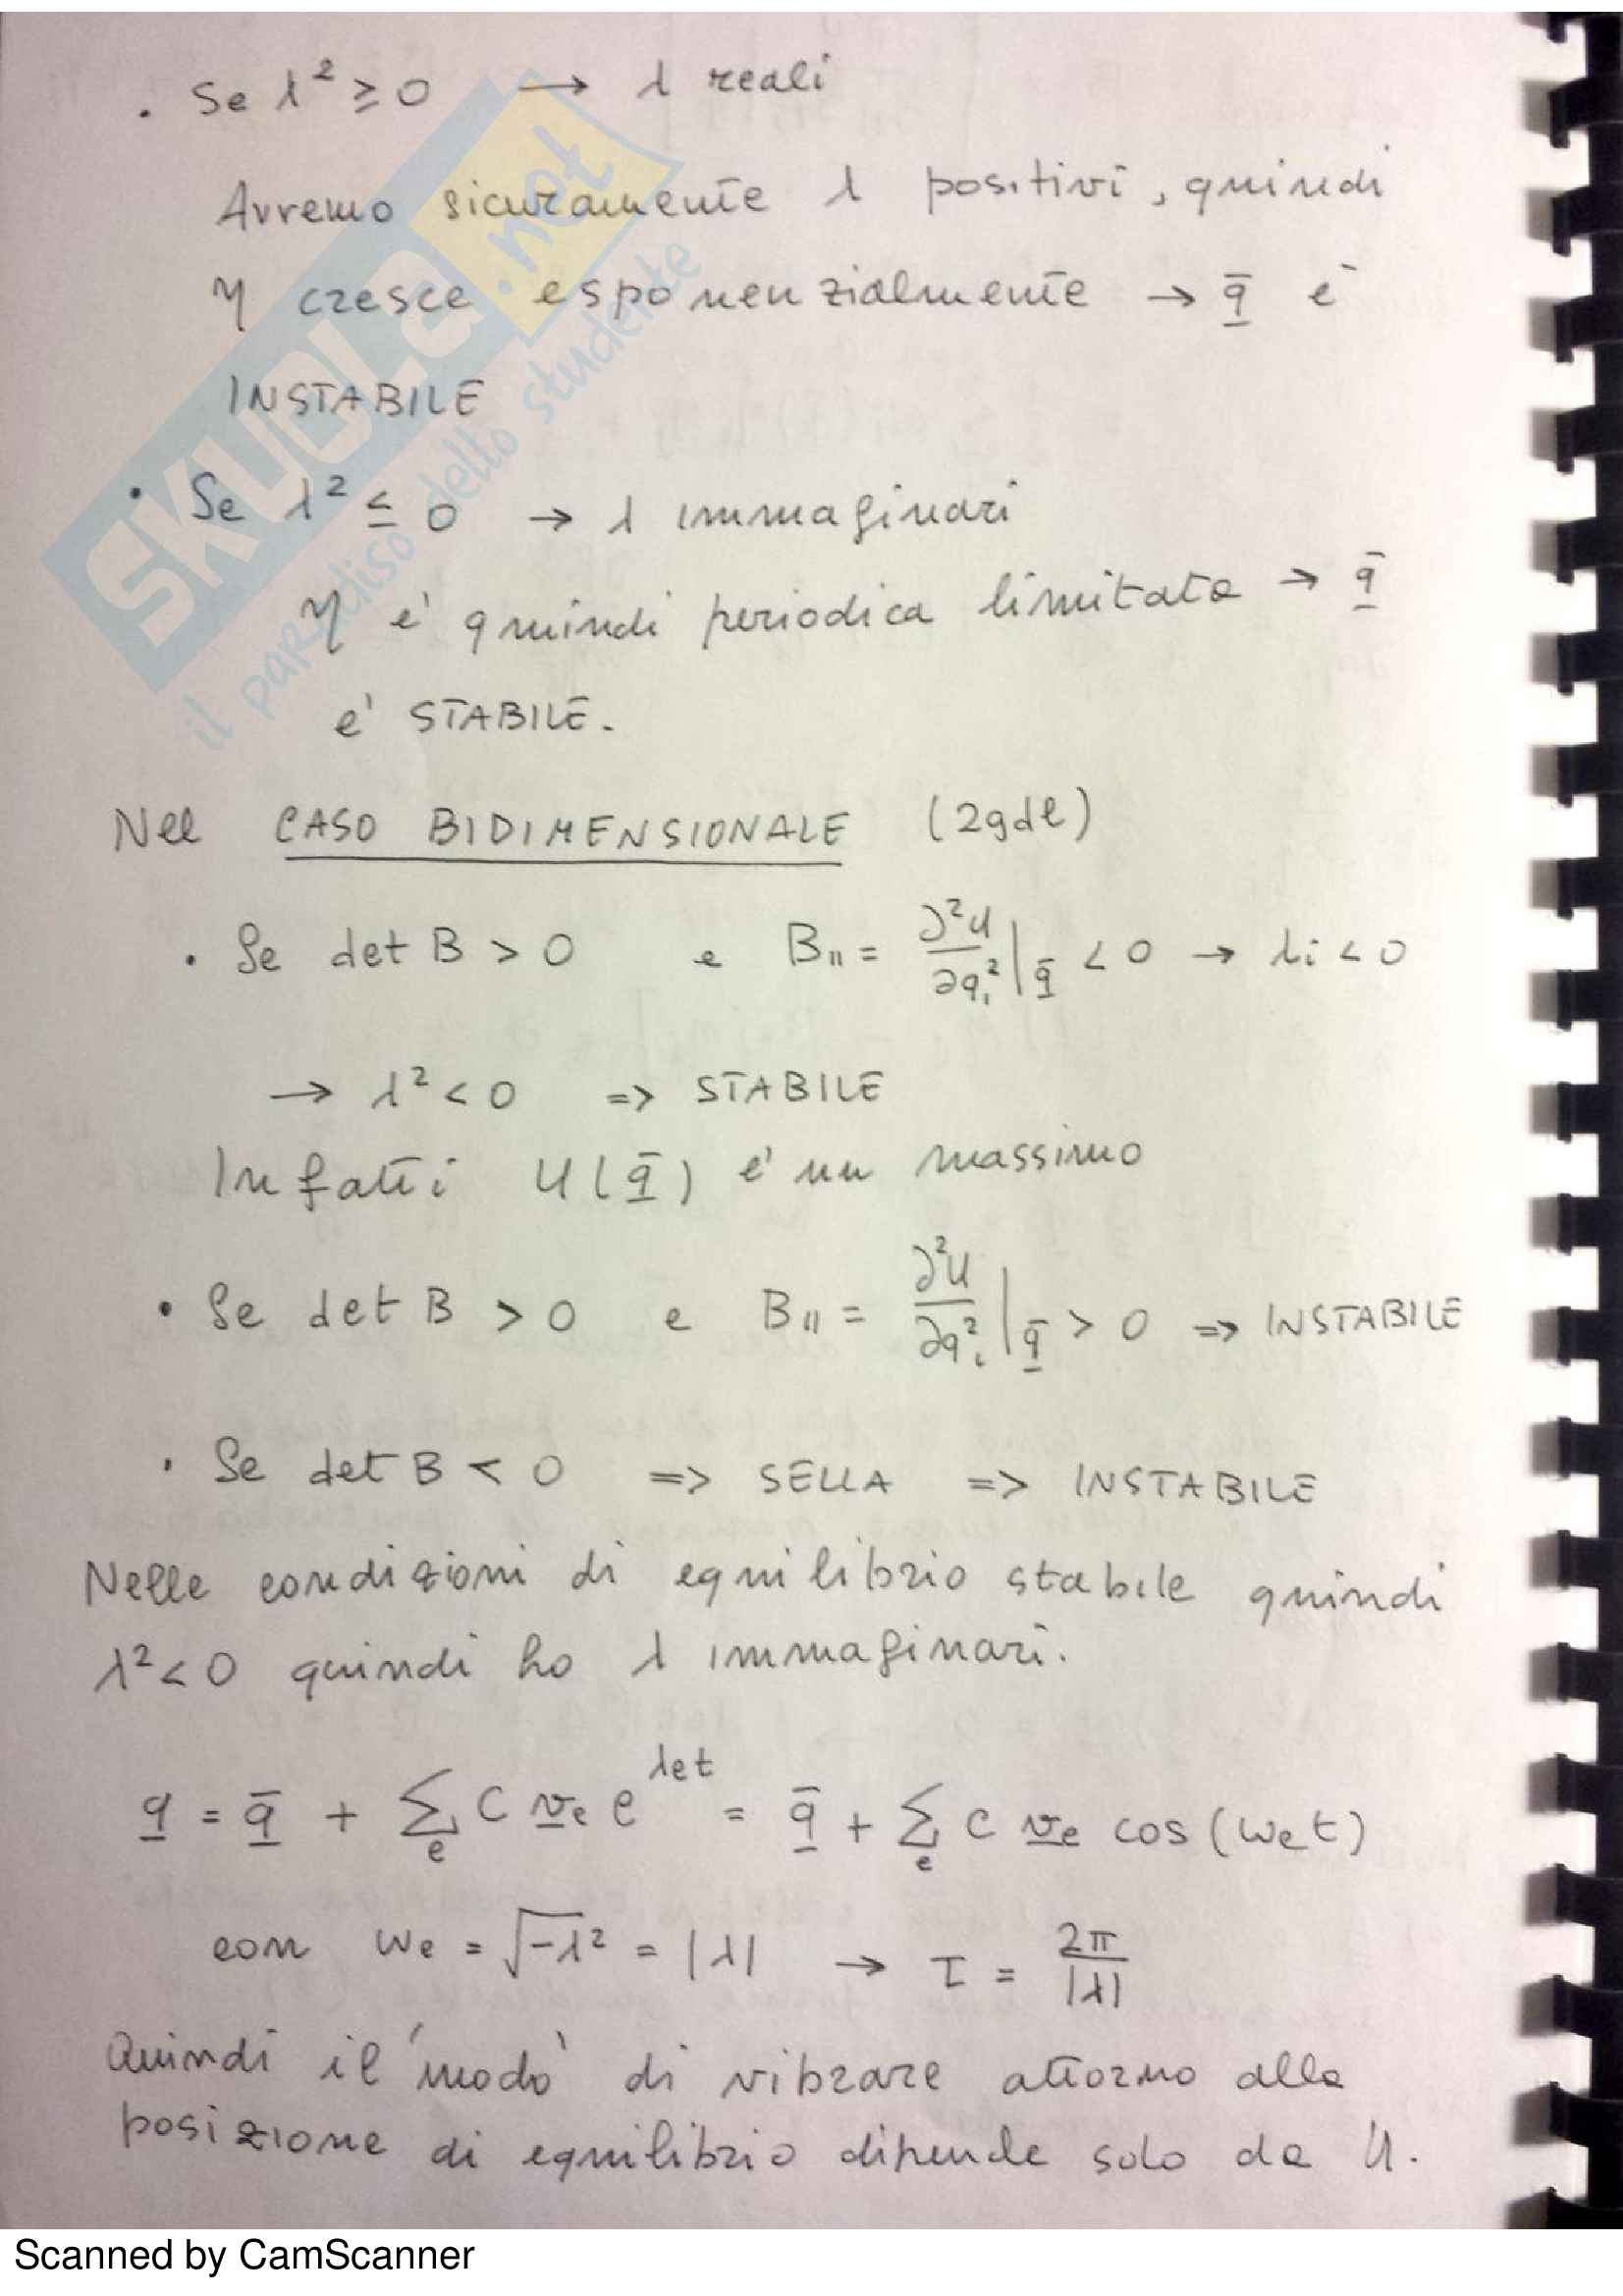 . Se λ² ≥ 0 → λ reali
Avremo sicuramente λ positivi, quindi
η cresce esponenzialmente → q̲̄ è
INSTABILE
· Se λ² ≤ 0 → λ immaginari
η è quindi periodica limitata → q̲̄
è STABILE.
Nel CASO BIDIMENSIONALE (2gdl)
. Se det B > 0 e B₁₁ = ∂²U/∂q₁² |q̲̄ < 0 → λi < 0
→ λ² < 0 => STABILE
Infatti U(q̲̄) è un massimo
• Se det B > 0 e B₁₁ = ∂²U/∂q₁² |q̲̄ > 0 => INSTABILE
· Se det B < 0 => SELLA => INSTABILE
Nelle condizioni di equilibrio stabile quindi
λ² < 0 quindi ho λ immaginari.
q̲ = q̲̄ + Σe C v̲e e^λet = q̲̄ + Σe C v̲e cos(wet)
con we = √-λ² = |λ| → T = 2π/|λ|
Quindi il 'modo' di vibrare attorno alla
posizione di equilibrio dipende solo da U.
SKUOLA.net
il paradiso dello studente
Scanned by CamScanner